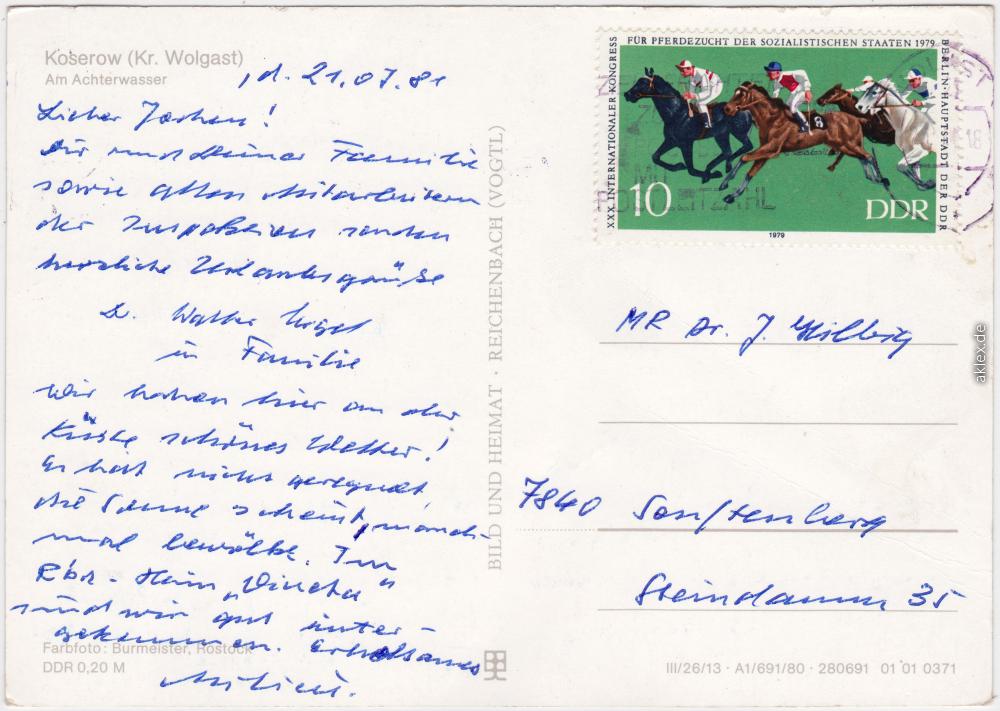 Koserow (Kr. Wolgast)
Am Achterwasser
, d. 21.07.81
Lieber Jochen!
Dir und Deiner Familie
sowie allen Mitarbeitern
der Inspektion senden
herzliche Urlaubsgrüße
Dr. Walter
u Familie
Wir haben hier an der
Küste schönes Wetter!
Es hat nicht geregnet
die Sonne scheint, manch-
mal bewölkt. Im
Rbz-Heim „Vineta“
sind wir gut unter-
gekommen. Erholsames
Farbfoto: Burmeister, Rostock
DDR 0,20 M
BILD UND HEIMAT · REICHENBACH (VOGTL)
XXX. INTERNATIONALER KONGRESS
FÜR PFERDEZUCHT DER SOZIALISTISCHEN STAATEN 1979
BERLIN · HAUPTSTADT DER DDR
8
10
DDR
1979
MIT
POSTLEITZAHL
18
MR Dr. J. Hilbig
7840 Senftenberg
Steindamm 35
III/26/13 · A1/691/80 · 280691 01 01 0371
aklex.de